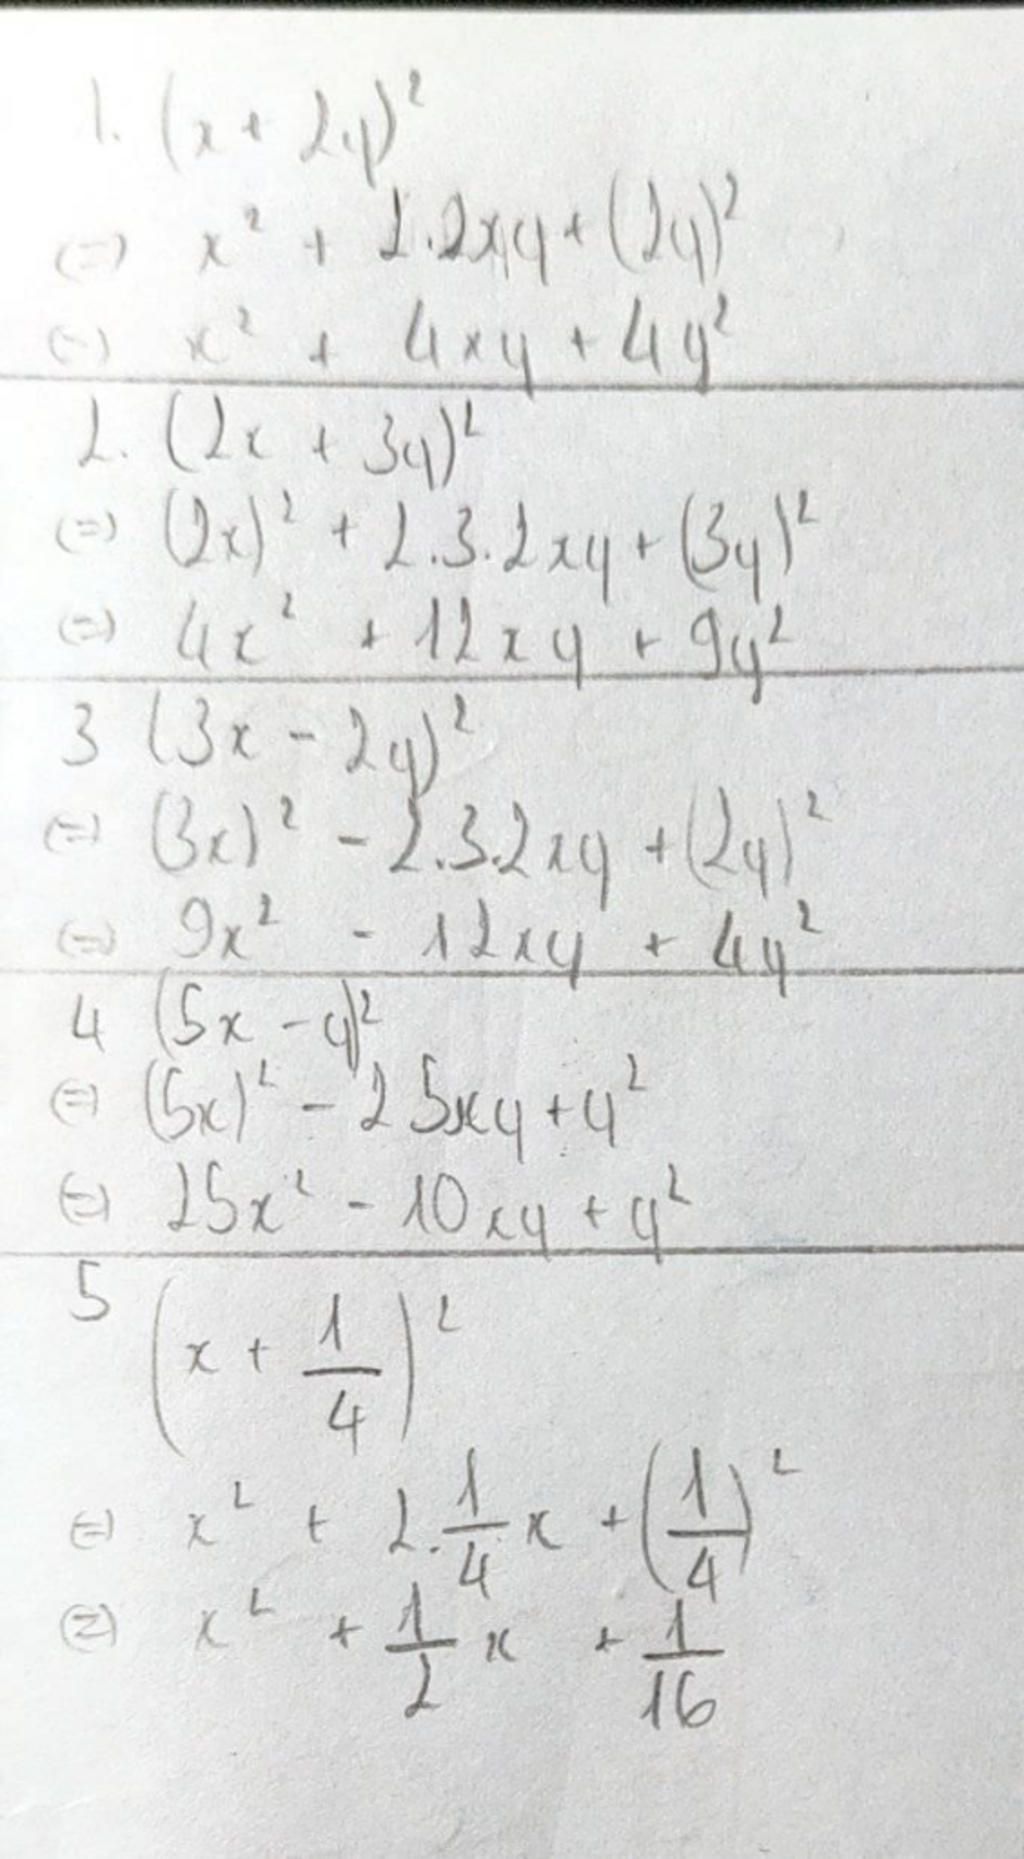 1. (x + 2y)²
(=) x² + 2.2xy + (2y)²
(=) x² + 4xy + 4y²
2. (2x + 3y)²
(=) (2x)² + 2.3.2xy + (3y)²
(=) 4x² + 12xy + 9y²
3 (3x - 2y)²
(=) (3x)² - 2.3.2xy + (2y)²
(=) 9x² - 12xy + 4y²
4 (5x - y)²
(=) (5x)² - 2 5xy + y²
(=) 25x² - 10xy + y²
5 (x + 1/4)²
(=) x² + 2.1/4 x + (1/4)²
(=) x² + 1/2 x + 1/16